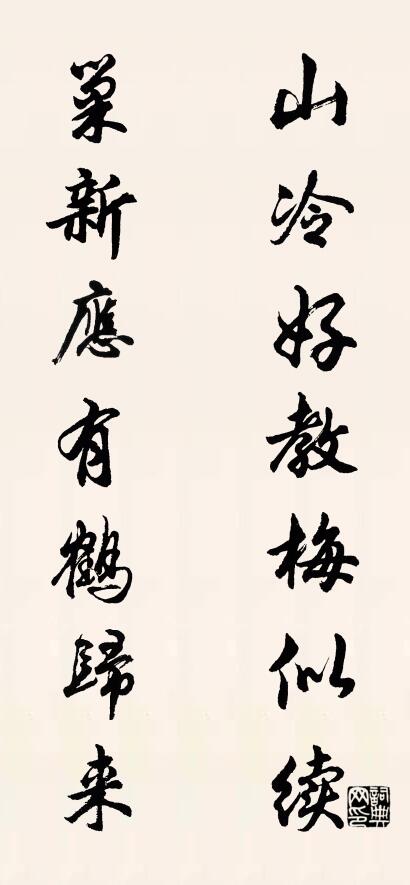 山冷好教梅似续
巢新應有鶴歸来
詞典网印